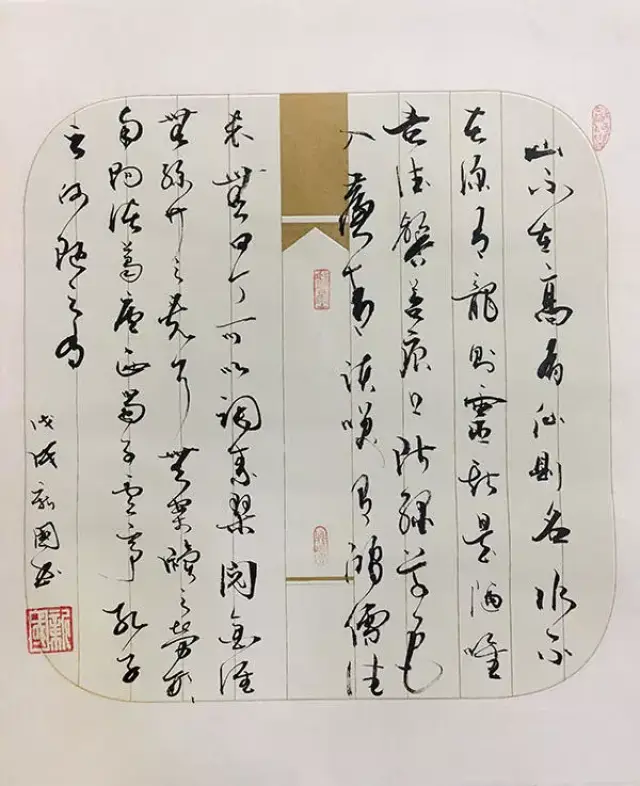 山不在高有仙則名水不
在深有龍則靈斯是陋唯
吾德馨苔痕上階綠草色
入簾青談笑有鴻儒往
來無白丁可以調素琴閱金經
無絲竹之亂耳無案牘之勞形
南陽諸葛廬西蜀子雲亭孔子
云何陋之有
戊戌新國書